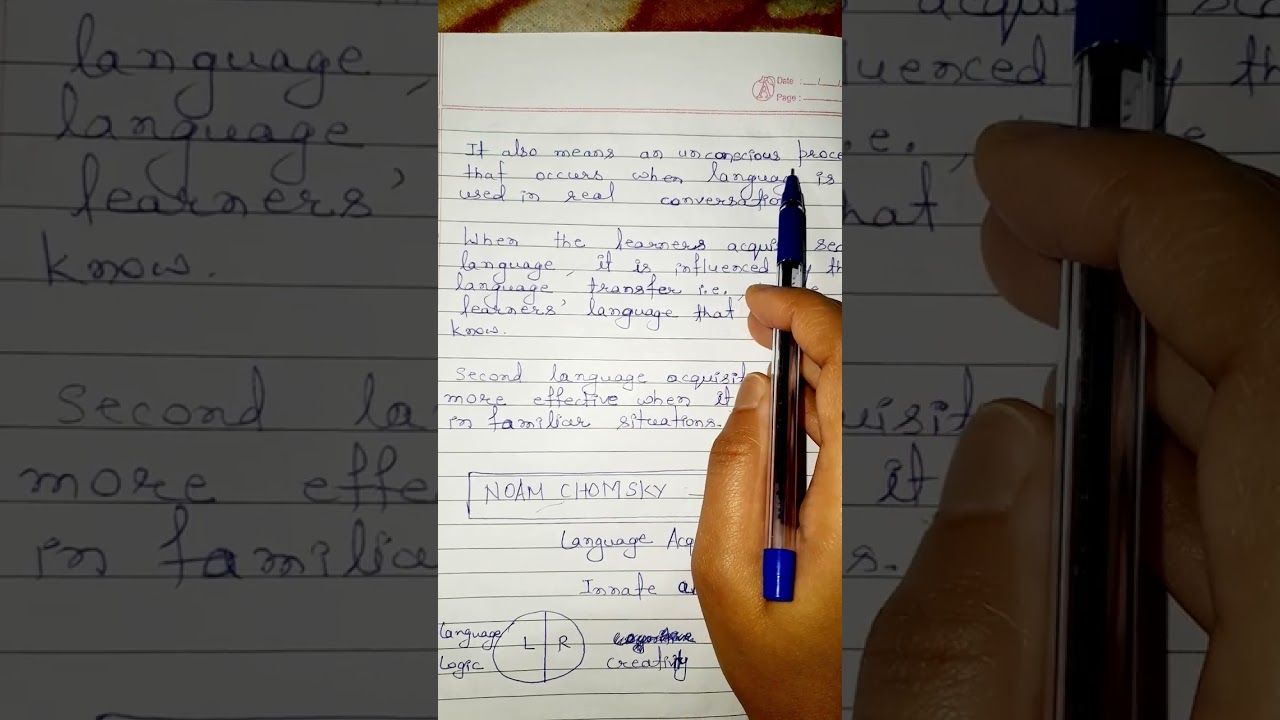 Date :
Page :
It also means an unconscious proce
that occurs when language is
used in real conversation
When the learners acqui sec
language, it is influenced by th
language transfer i.e.,
learners' language that
know.
Second language acquisit
more effective when it
in familiar situations.
NOAM CHOMSKY
Language Acq
Innate
Language
Logic
L
R
creativity